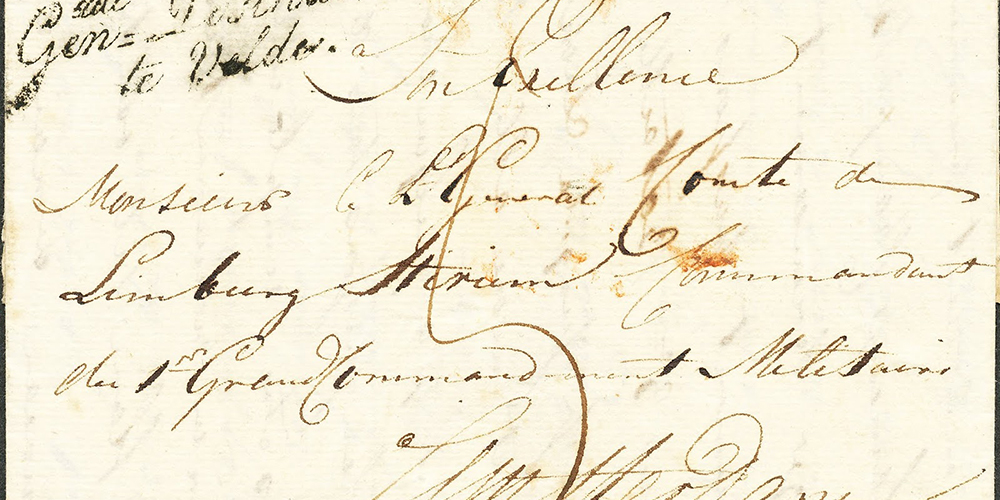 Gen=
te Velde.
a Son Excellence
Monsieur le Lt General Comte de
Limburg Stirum Commandant
du 1er Grand Commandement Militaire
Amsterdam